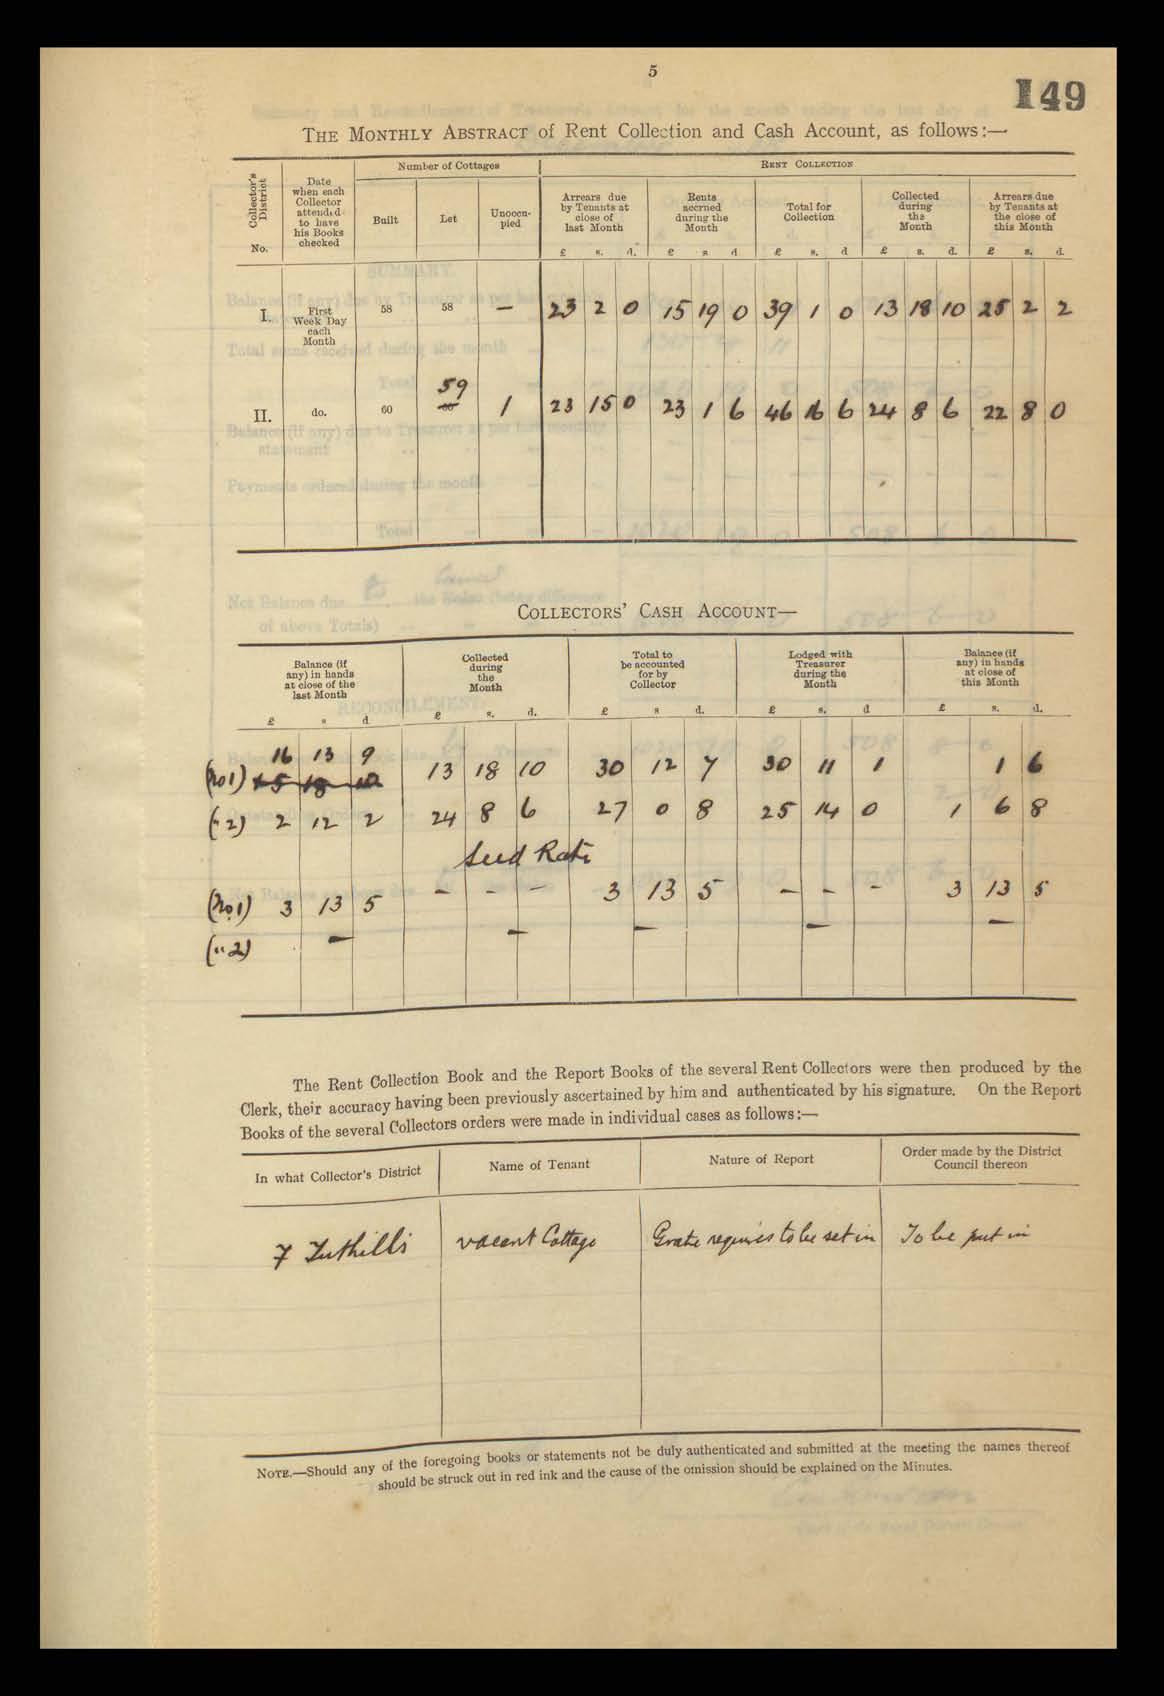 5
149
THE MONTHLY ABSTRACT of Rent Collection and Cash Account, as follows:—
Collector's District No.
Date when each Collector attended to have his Books checked
Number of Cottages
Built
Let
Unoccupied
RENT COLLECTION
Arrears due by Tenants at close of last Month
Rents accrued during the Month
Total for Collection
Collected during the Month
Arrears due by Tenants at the close of this Month
£ s. d. £ s d £ s. d £ s. d. £ s. d.
I. First Week Day each Month 58 58 — 23 2 0 15 19 0 39 1 0 13 18 10 25 2 2
59
II. do. 60 60 1 23 15 0 23 1 6 46 16 6 24 8 6 22 8 0
COLLECTORS' CASH ACCOUNT—
Balance (if any) in hands at close of the last Month
Collected during the Month
Total to be accounted for by Collector
Lodged with Treasurer during the Month
Balance (if any) in hands at close of this Month
£ s d £ s. d. £ s d. £ s. d £ s. d.
16 13 9
(No 1) 15 18 10 13 18 10 30 12 7 30 11 1 1 6
(" 2) 2 12 2 24 8 6 27 0 8 25 14 0 1 6 8
Seed Rate
(No. 1) 3 13 5 - - - 3 13 5 - - - 3 13 5
(" 2) — — — — —
The Rent Collection Book and the Report Books of the several Rent Collectors were then produced by the
Clerk, their accuracy having been previously ascertained by him and authenticated by his signature. On the Report
Books of the several Collectors orders were made in individual cases as follows:—
In what Collector's District
Name of Tenant
Nature of Report
Order made by the District Council thereon
7 Tuthills vacant Cottage Grate requires to be set in To be put in
NOTE.—Should any of the foregoing books or statements not be duly authenticated and submitted at the meeting the names thereof
should be struck out in red ink and the cause of the omission should be explained on the Minutes.